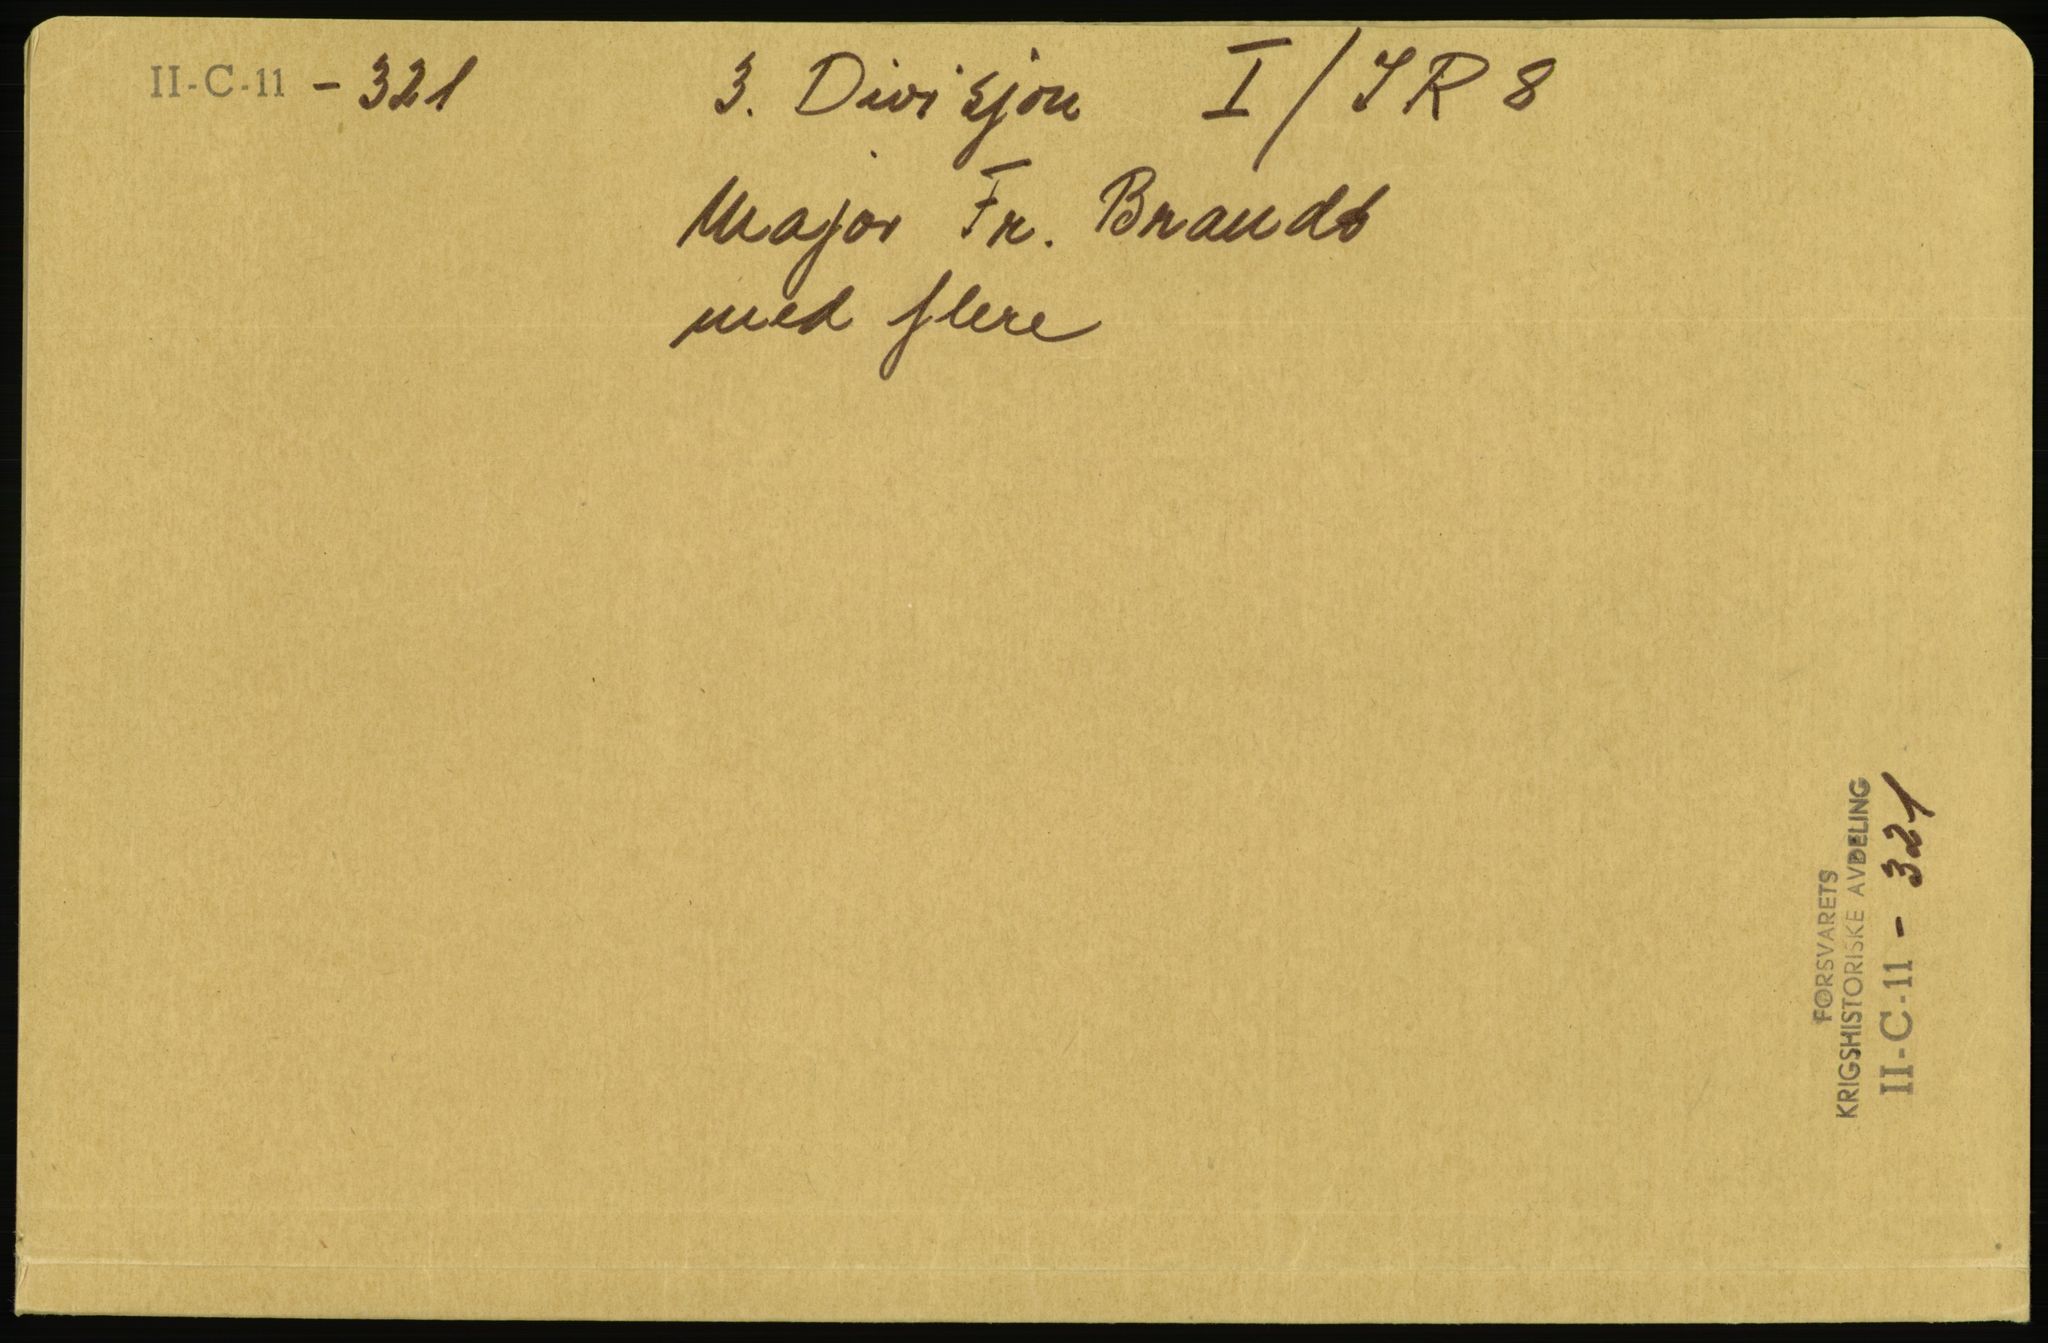 II-C-11 - 321
3. Divisjon I/IR 8
Major Fr. Brandt
med flere
FORSVARETS
KRIGSHISTORISKE AVDELING
II-C-11 - 321